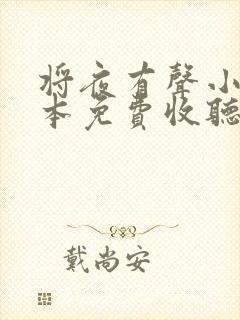 将夜有聲小
本免費收聽
戴尚安